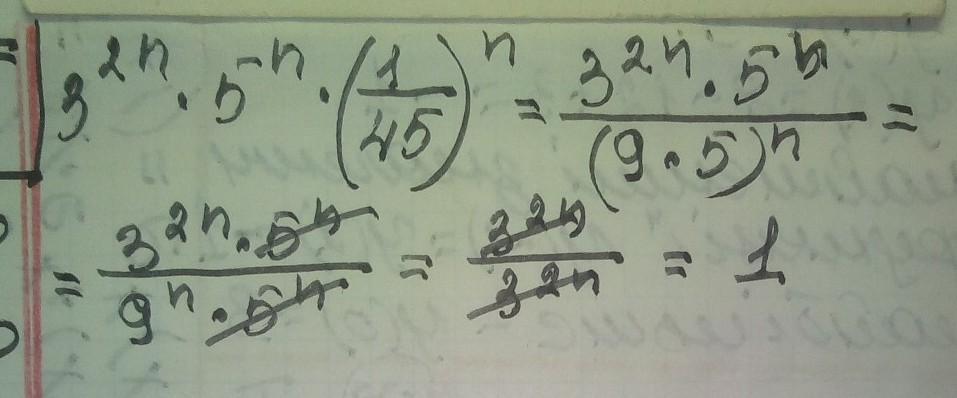 3^{2n} · 5^n · (1/45)^n = (3^{2n} · 5^n)/((9 · 5)^n) =
= (3^{2n} · 5^n)/(9^n · 5^n) = 3^{2n}/3^{2n} = 1